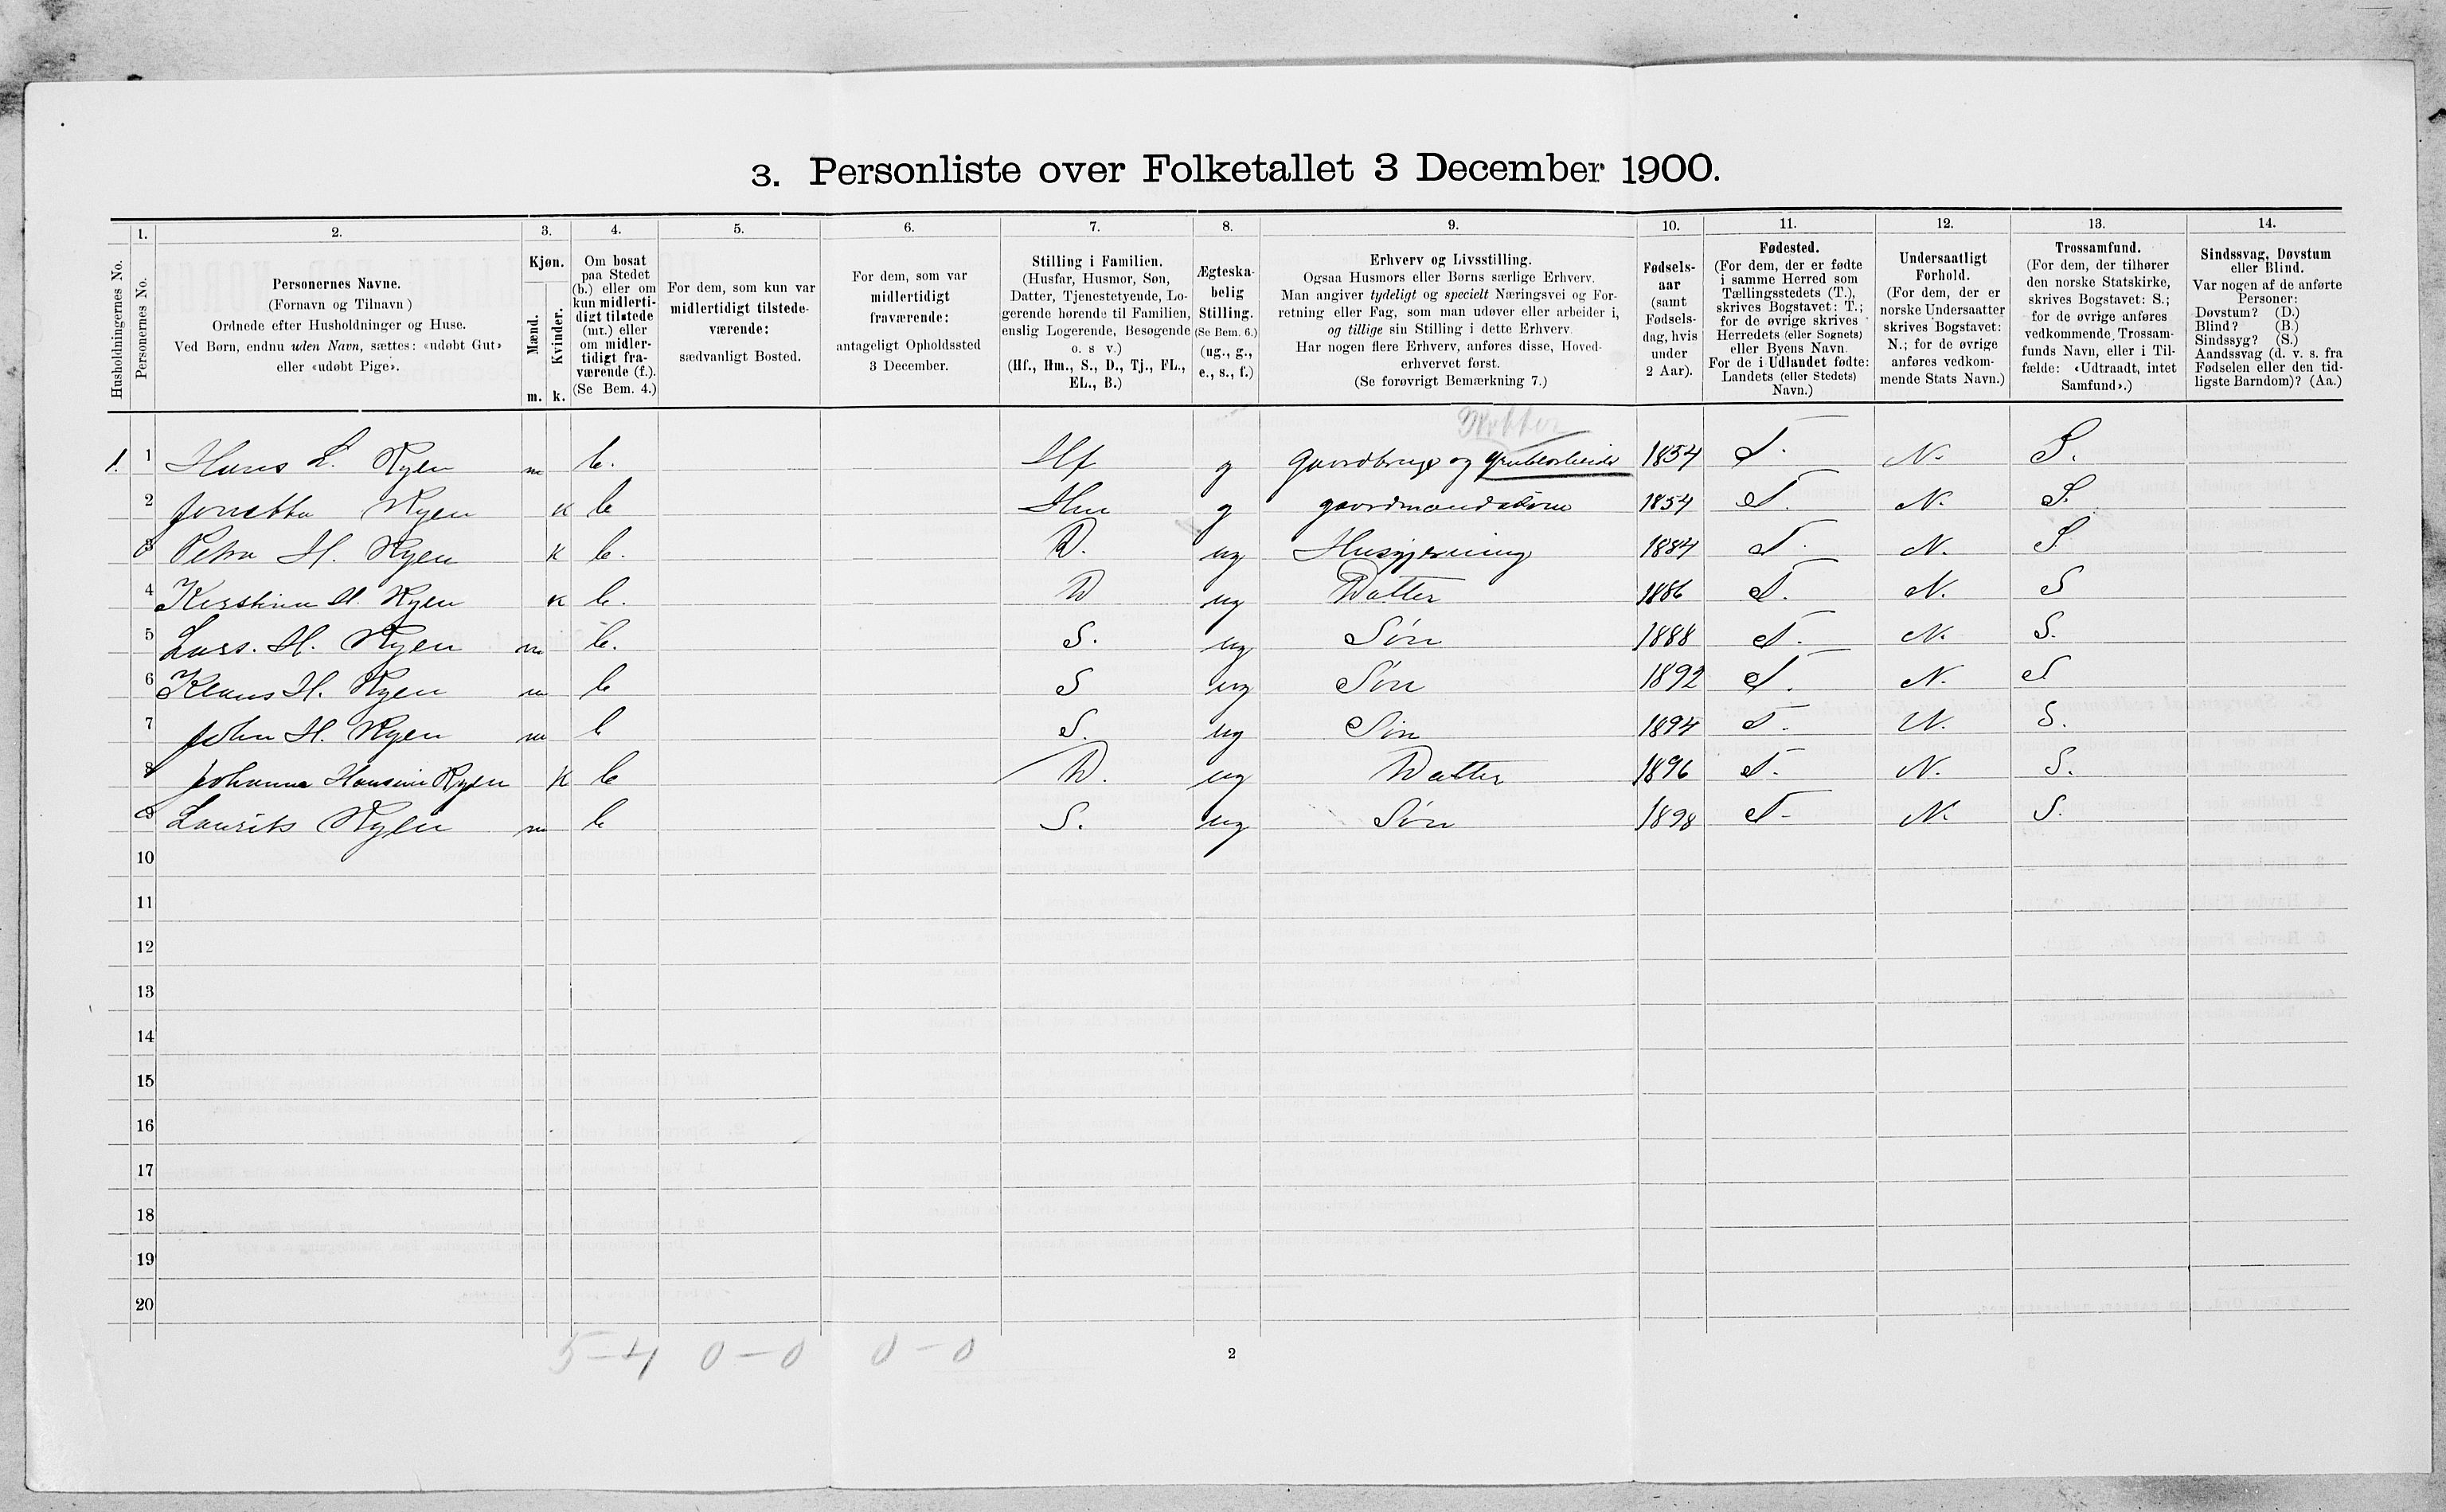 3. Personliste over Folketallet 3 December 1900.
Husholdningernes No.
1.
Personernes No.
2.
Personernes Navne.
(Fornavn og Tilnavn)
Ordnede efter Husholdninger og Huse.
Ved Børn, endnu uden Navn, sættes: «udøbt Gut»
eller «udøbt Pige».
3.
Kjøn.
Mænd.
Kvinder.
m. k.
4.
Om bosat
paa Stedet
(b.) eller om
kun midlerti-
digt tilstede
(mt.) eller
om midler-
tidigt fra-
værende (f.).
(Se Bem. 4.)
5.
For dem, som kun var
midlertidigt tilstede-
værende:
sædvanligt Bosted.
6.
For dem, som var
midlertidigt
fraværende:
antageligt Opholdssted
3 December.
7.
Stilling i Familien.
(Husfar, Husmor, Søn,
Datter, Tjenestetyende, Lo-
gerende hørende til Familien,
enslig Logerende, Besøgende
o. s v.)
(Hf., Hm., S., D., Tj., FL.,
EL., B.)
8.
Ægteska-
belig
Stilling.
(Se Bem. 6.)
(ug., g.,
e., s., f.)
9.
Erhverv og Livsstilling.
Ogsaa Husmors eller Børns særlige Erhverv.
Man angiver tydeligt og specielt Næringsvei og For-
retning eller Fag, som man udøver eller arbeider i,
og tillige sin Stilling i dette Erhverv.
Har nogen flere Erhverv, anføres disse, Hoved-
erhvervet først.
(Se forøvrigt Bemærkning 7.)
10.
Fødsels-
aar
(samt
Fødsels-
dag, hvis
under
2 Aar).
11.
Fødested.
(For dem, der er fødte
i samme Herred som
Tællingsstedets (T.),
skrives Bogstavet: T.;
for de øvrige skrives
Herredets (eller Sognets)
eller Byens Navn.
For de i Udlandet fødte:
Landets (eller Stedets)
Navn.)
12.
Undersaatligt
Forhold.
(For dem, der er
norske Undersaatter
skrives Bogstavet:
N.; for de øvrige
anføres vedkom-
mende Stats Navn.)
13.
Trossamfund.
(For dem, der tilhører
den norske Statskirke,
skrives Bogstavet: S.;
for de øvrige anføres
vedkommende Trossam-
funds Navn, eller i Til-
fælde: «Udtraadt, intet
Samfund».)
14.
Sindssvag, Døvstum
eller Blind.
Var nogen af de anførte
Personer:
Døvstum? (D.)
Blind? (B.)
Sindssyg? (S.)
Aandssvag (d. v. s. fra
Fødselen eller den tid-
ligste Barndom)? (Aa.)
1. 1 Hans L. Ryen m b. Hf g Gaardbruger og Grubearbeider 1854 T. N. S.
2 Jonetta Ryen k b Hm g gaardmandskone 1854 T. N. S.
3 Petra H. Ryen k b. D. ug Husgjerning 1884 T. N. S
4 Kirstina H. Ryen k b. D ug Datter 1886 T. N. S
5 Lars. H. Ryen m b. S. ug Søn 1888 T. N. S.
6 Klaus H. Ryen m b S ug Søn 1892 T. N. S
7 John H. Ryen m b S. ug Søn 1894 T. N. S.
8 Johanna Hansine Ryen k b D. ug Datter 1896 T. N. S.
9 Laurits Ryen m b S. ug Søn 1898 T. N. S.
10
11
12
13
14
15
16
17
18
19
20
5-4 0-0 0-0
2